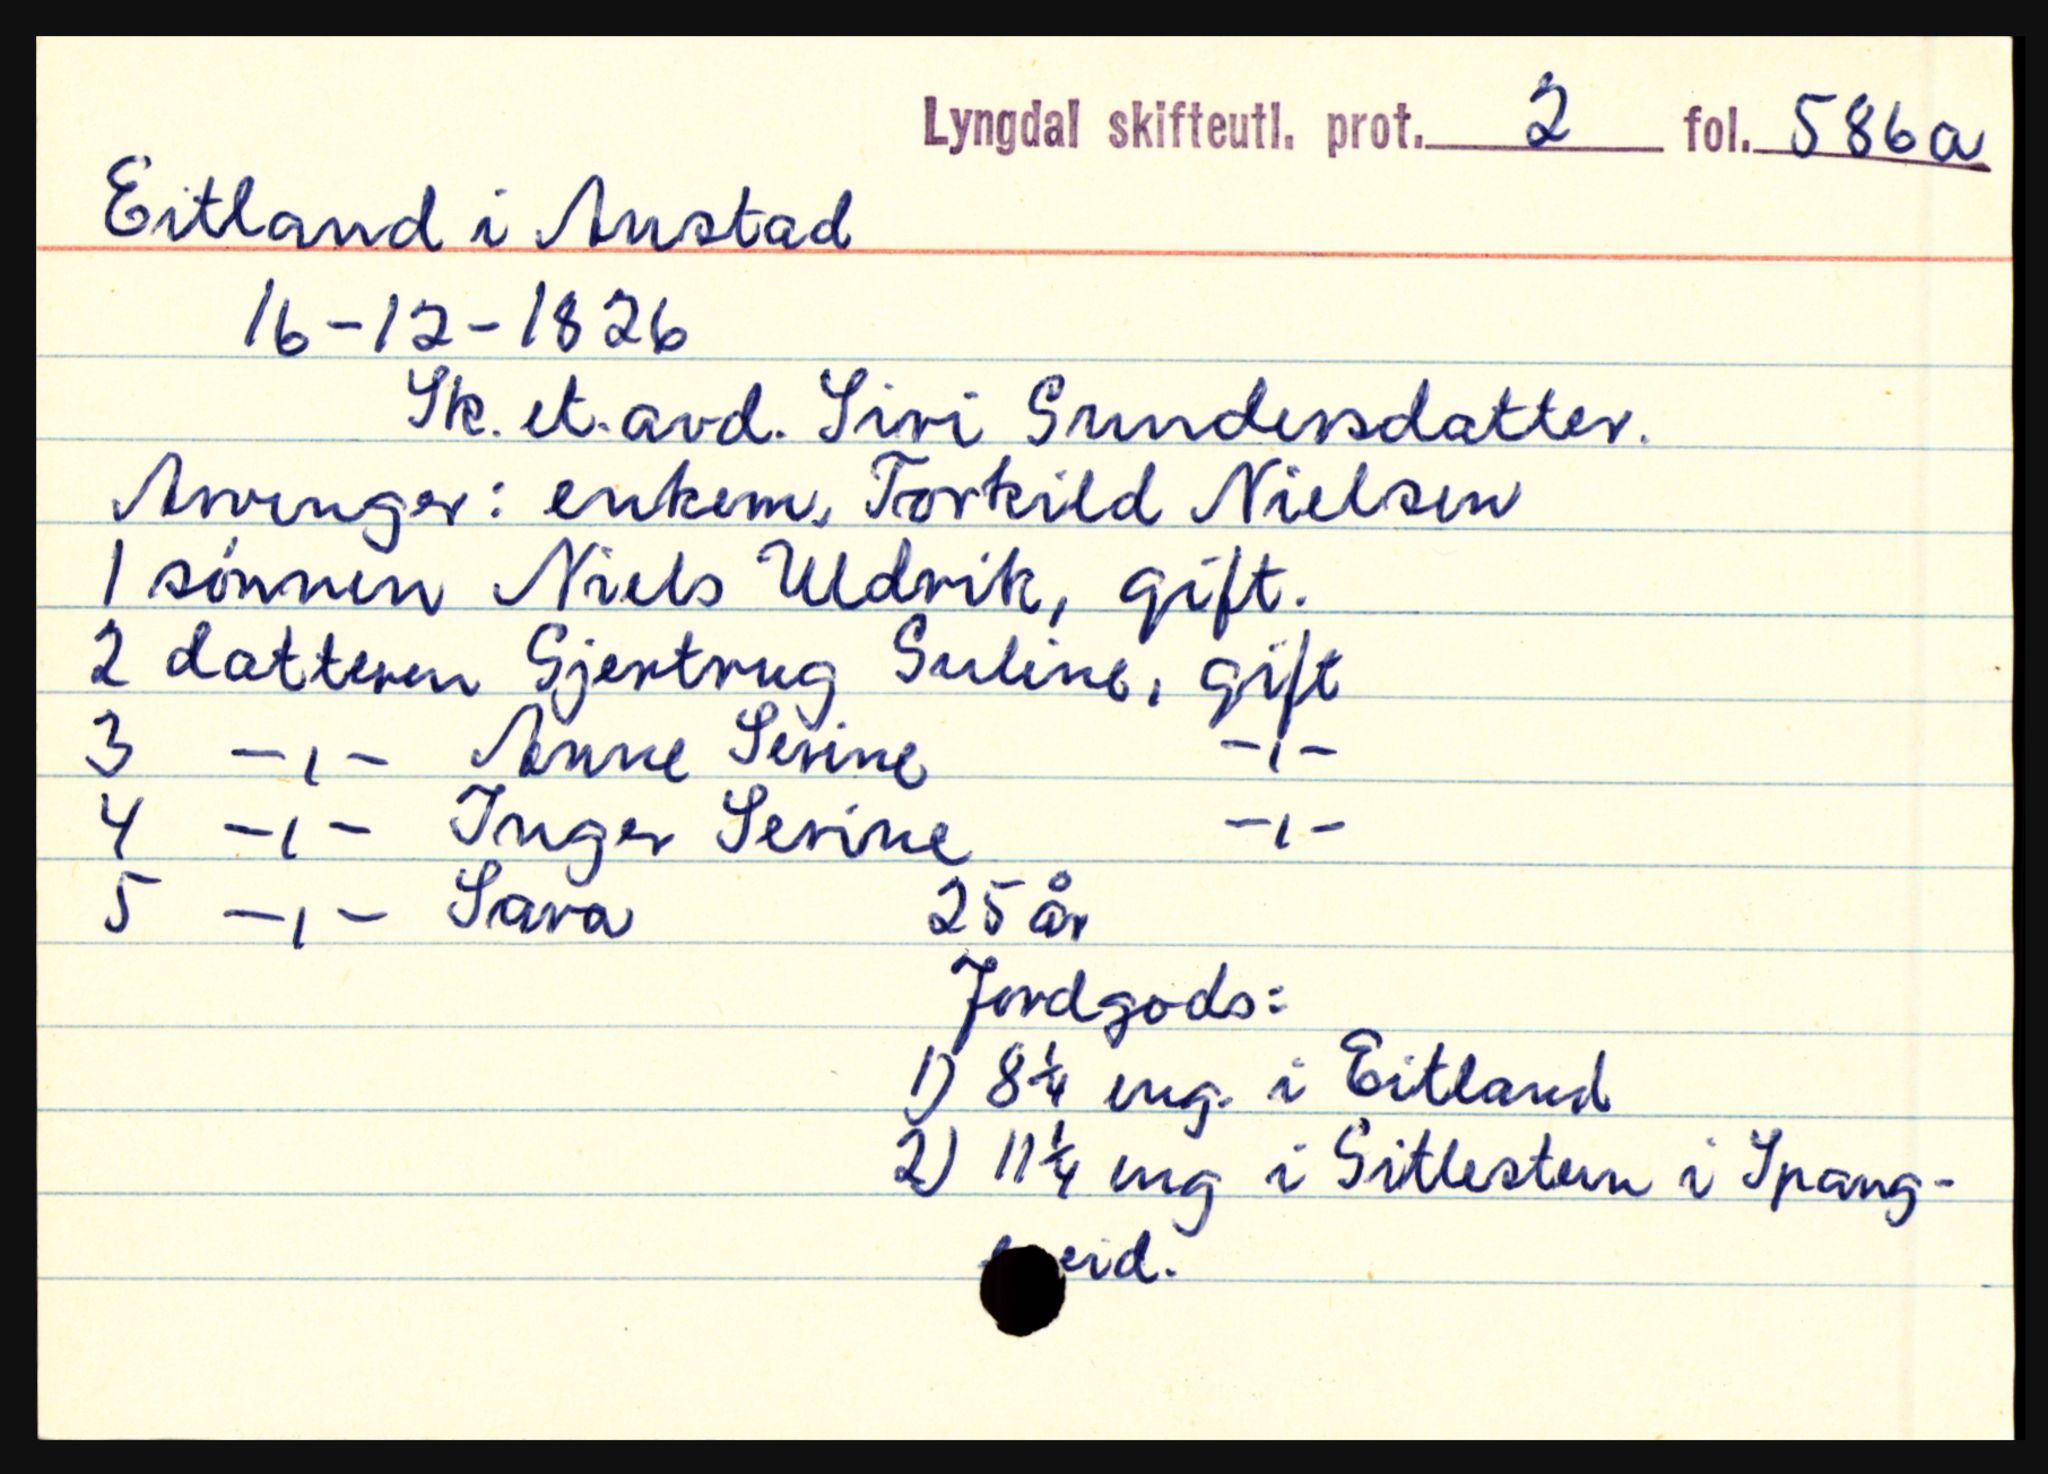 Lyngdal skifteutl. prot. 2 fol. 586a
Eitland i Austad
16-12-1826
Sk. et. avd. Siri Gundersdatter.
Arvinger: enkem. Torkild Nielsen
1 sønnen Niels Uldrik, gift.
2 datteren Gjertrug Guline, gift
3 -ı- Anne Serine -ı-
4 -ı- Inger Serine -ı-
5 -ı- Sara 25 år
Jordgods:
1) 8¼ eng. i Eitland
2) 11¼ eng i Gitlestein i Spang-